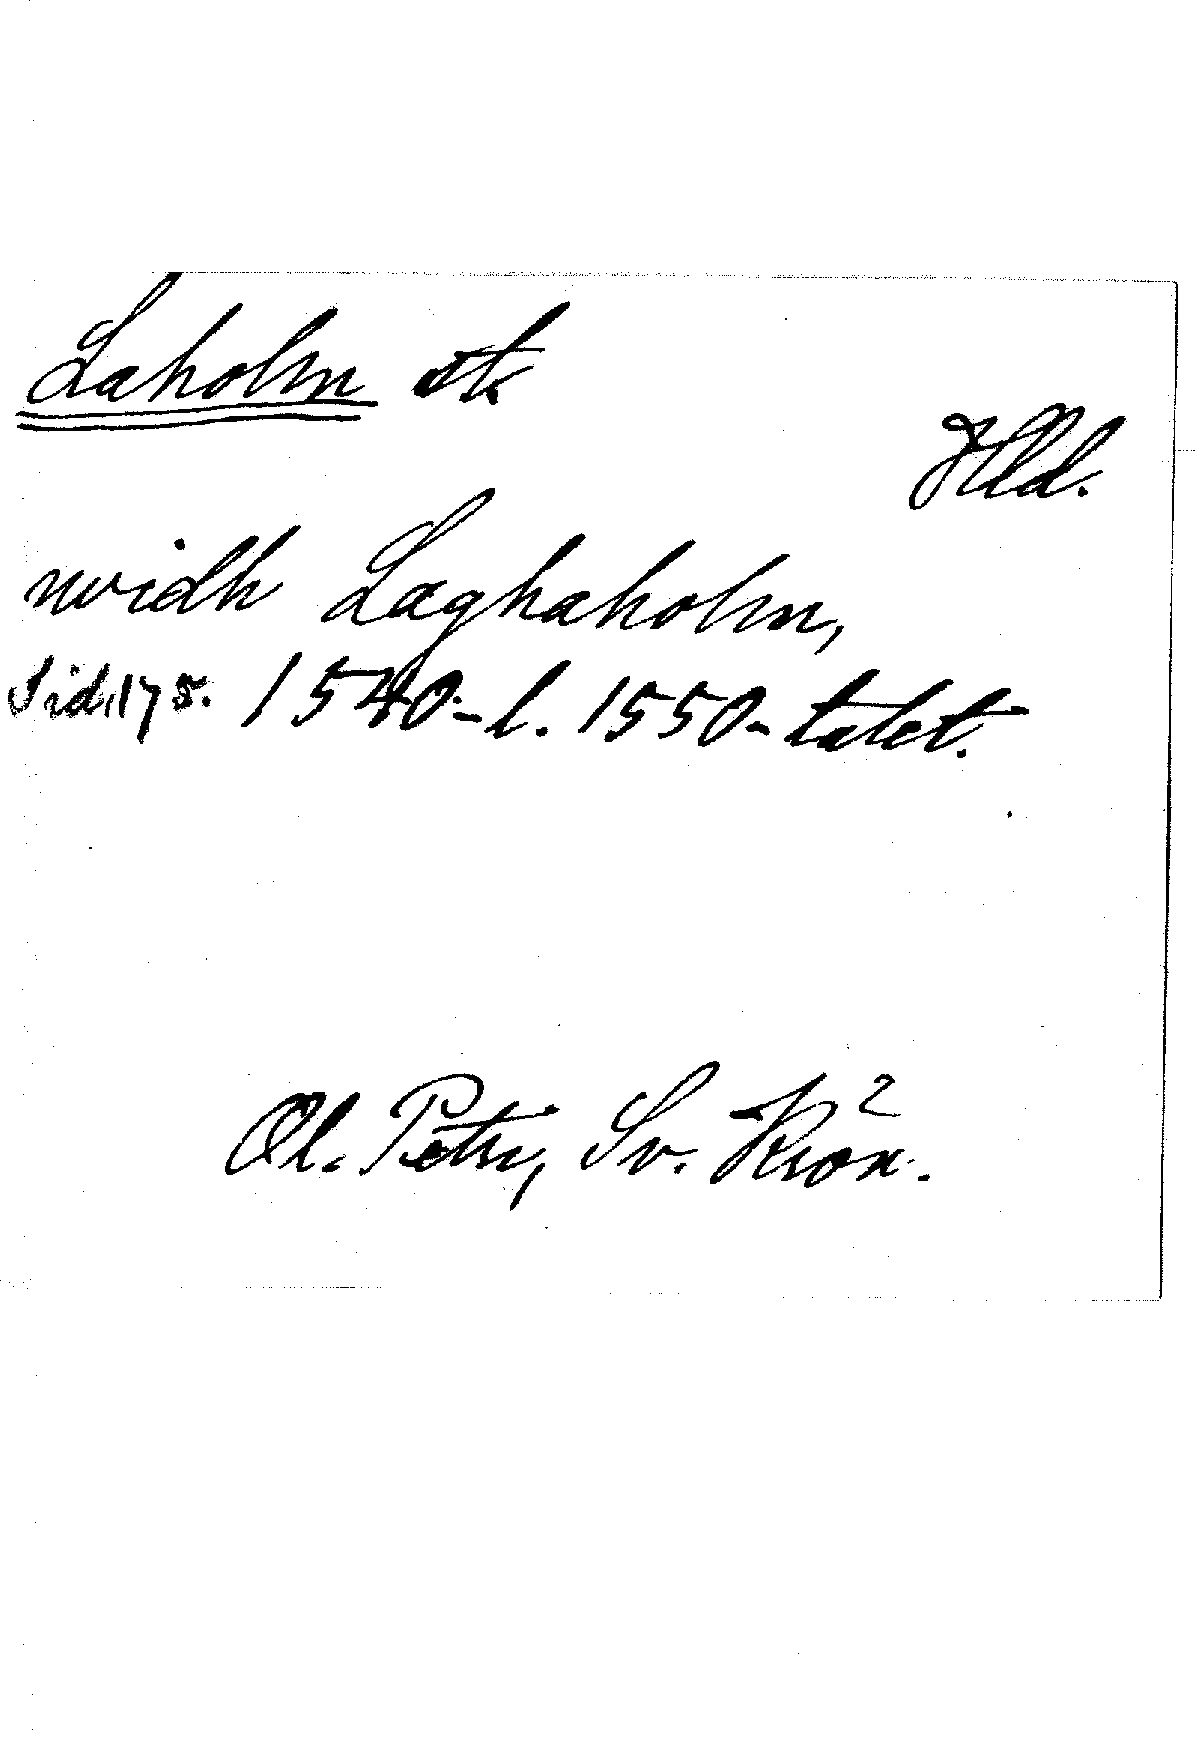 Laholm st.
Hld.
widh Laghaholm,
Sid. 175. 1540- l. 1550-talet.
Ol. Petri, Sv. Krön.²